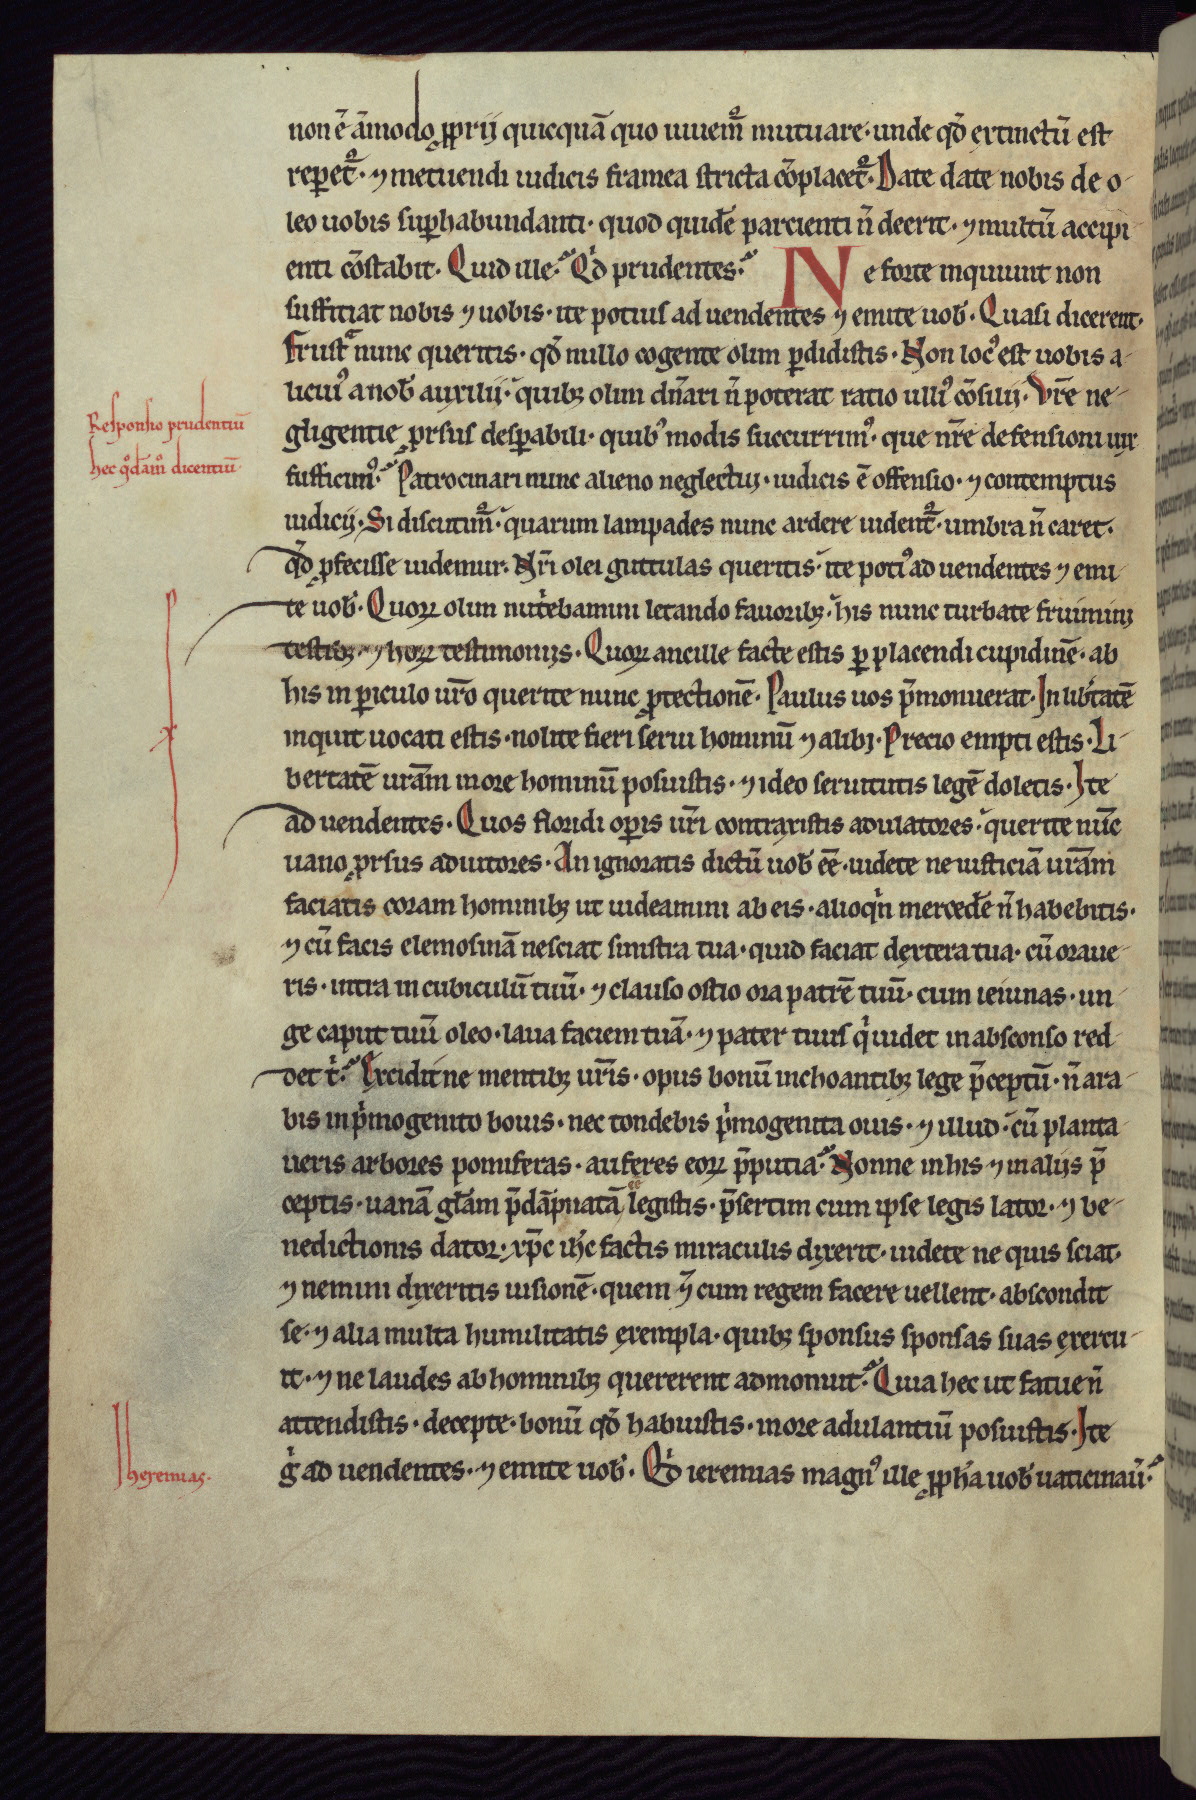 non ē āmodo ꝓprii quicquā quo uiuem᷑ mutuare · unde qđ extinctū est
repet᷑ · ⁊ metuendi iudicis framea stricta cōplacet᷑ · Date date nobis de o-
leo uobis suꝑhabundanti · quod quidē parcienti n̄ deerit · ⁊ multū accipi-
enti cōstabit · Quid ille? Qd̓ prudentes? Ne forte inquiunt non
sufficiat nobis ⁊ uobis · ite potius ad uendentes ⁊ emite uob̄ · Quasi dicerent ·
Frustᵃ nunc queritis · qđ nullo cogente olim ꝑdidistis · Non locꝰ est uobis a-
licuiꝰ a nob̄ auxilii · quibꝫ olim dn̄ari n̄ poterat ratio ulliꝰ cōsilii · Vr̄e ne-
gligentie ꝓrsus desꝑabili · quibꝰ modis succurrimꝰ · que nr̄e defensioni uix
sufficimꝰ? Patrocinari nunc alieno neglectui · iudicis ē offensio · ⁊ contemptus
iudicii · Si discutim᷑ · quarum lampades nunc ardere uident᷑ · umbra n̄ caret ·
qđ ꝓfecisse uidemur · Nr̄i olei guttulas queritis · ite potiꝰ ad uendentes ⁊ emi-
te uob̄ · Quoꝝ olim nut̓ebamini letando fauoribꝫ · his nunc turbate fruimini
testibꝫ · ⁊ hoꝝ testimoniis · Quoꝝ ancille facte estis ꝑ placendi cupidinē · ab
his in ꝑiculo ur̄o querite nunc ꝓtectionē · Paulus uos p̄monuerat · In lib̓tatē
inquit uocati estis · nolite fieri serui hominū ⁊ alibi · Precio empti estis · Li-
bertatē ur̄am more hominū posuistis · ⁊ ideo seruitutis legē doletis · Ite
ad uendentes · Quos floridi oꝑis ur̄i contraxistis adulatores · querite nūc
uano ꝓrsus adiutores · An ignoratis dictū uob̄ eē · uidete ne iusticiā ur̄am
faciatis coram hominibꝫ ut uideamini ab eis · alioqͥn mercedē n̄ habebitis ·
⁊ cū facis elemosinā nesciat sinistra tua · quid faciat dextera tua · cū oraue-
ris · intra in cubiculū tuū · ⁊ clauso ostio ora patrē tuū · cum ieiunas · un-
ge caput tuū oleo · laua faciem tuā · ⁊ pater tuus qͥ uidet in absconso red-
det tͥ? Excidit ne mentibꝫ ur̄is · opus bonū inchoantibꝫ lege p̄ceptū · n̄ ara-
bis in pͥmogenito bouis · nec tondebis pͥmogenita ouis · ⁊ illud · cū planta-
ueris arbores pomiferas · auferes eoꝝ p̄putia? Nonne in his ⁊ in aliis p̄-
ceptis · uanā gl̄am p̄dāpnatā legistis · p̄sertim cum ipse legis lator · ⁊ be-
nedictionis dator · xp̄c ih̄c factis miraculis dixerit · uidete ne quis sciat ·
⁊ nemini dixeritis uisionē · quem ⁊̄ cum regem facere uellent · abscondit
se · ⁊ alia multa humilitatis exempla · quibꝫ sponsus sponsas suas exercu-
it · ⁊ ne laudes ab hominibꝫ quererent admonuit? Quia hec ut fatue n̄
attendistis · decepte · bonū qđ habuistis · more adulantiū posuistis · Ite
g̓ ad uendentes · ⁊ emite uob̄ · Qd̓ ieremias magnꝰ ille ꝓph̄a uob̄ uaticinaū?
Responsio prudentiū
hec qᵒdāmᵒ dicentiū
Iheremias ·